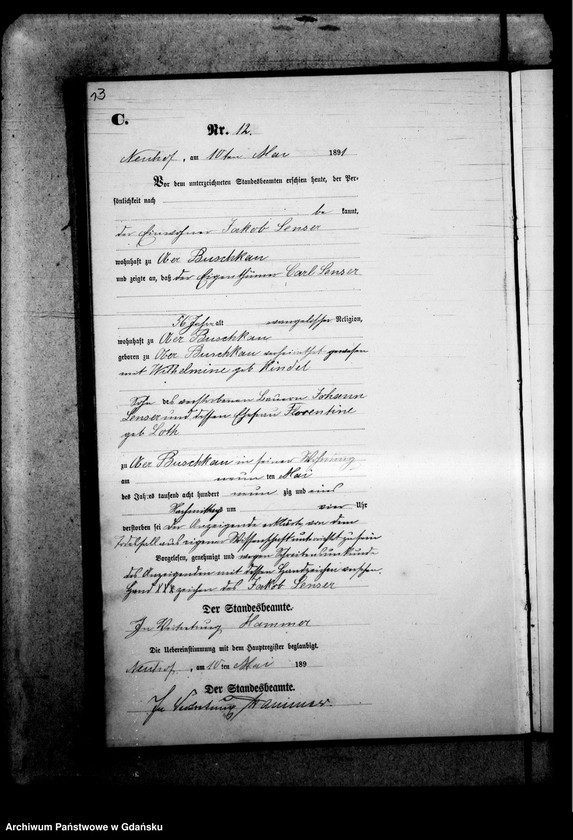 13
C.
Nr. 12.
Neuhof, am 10 ten Mai 1891
Vor dem unterzeichneten Standesbeamten erschien heute, der Per-
sönlichkeit nach
be kannt,
der Einwohner Jakob Senser
wohnhaft zu Ober Buschkau
und zeigte an, daß der Eigenthümer Carl Senser
56 Jahr alt evangelischer Religion,
wohnhaft zu Ober Buschkau
geboren zu Ober Buschkau verheirathet gewesen
mit Wilhelmine geb Rindel
Sohn des verstorbenen Bauern Johann
Senser und dessen Ehefrau Florentine
geb Loth
zu Ober Buschkau in seiner Wohnung
am neun ten Mai
des Jahres tausend acht hundert neun zig und eins
Nachmittags um vier Uhr
verstorben sei Der Anzeigende erklärte, von dem
Todesfall aus eigener Wissenschaft unterrichtet zu sein
Vorgelesen, genehmigt und wegen Schreibensunkunde
des Anzeigenden mit dessen Handzeichen versehen.
Hand XXX zeichen des Jakob Senser
Der Standesbeamte.
In Vertretung Hammer
Die Uebereinstimmung mit dem Hauptregister beglaubigt.
Neuhof, am 10 ten Mai 189
Der Standesbeamte.
In Vertretung Hammer.
Archiwum Państwowe w Gdańsku